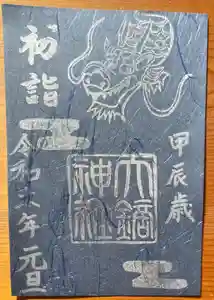 甲辰歳
大鏑
神社
初詣
令和六年 元旦